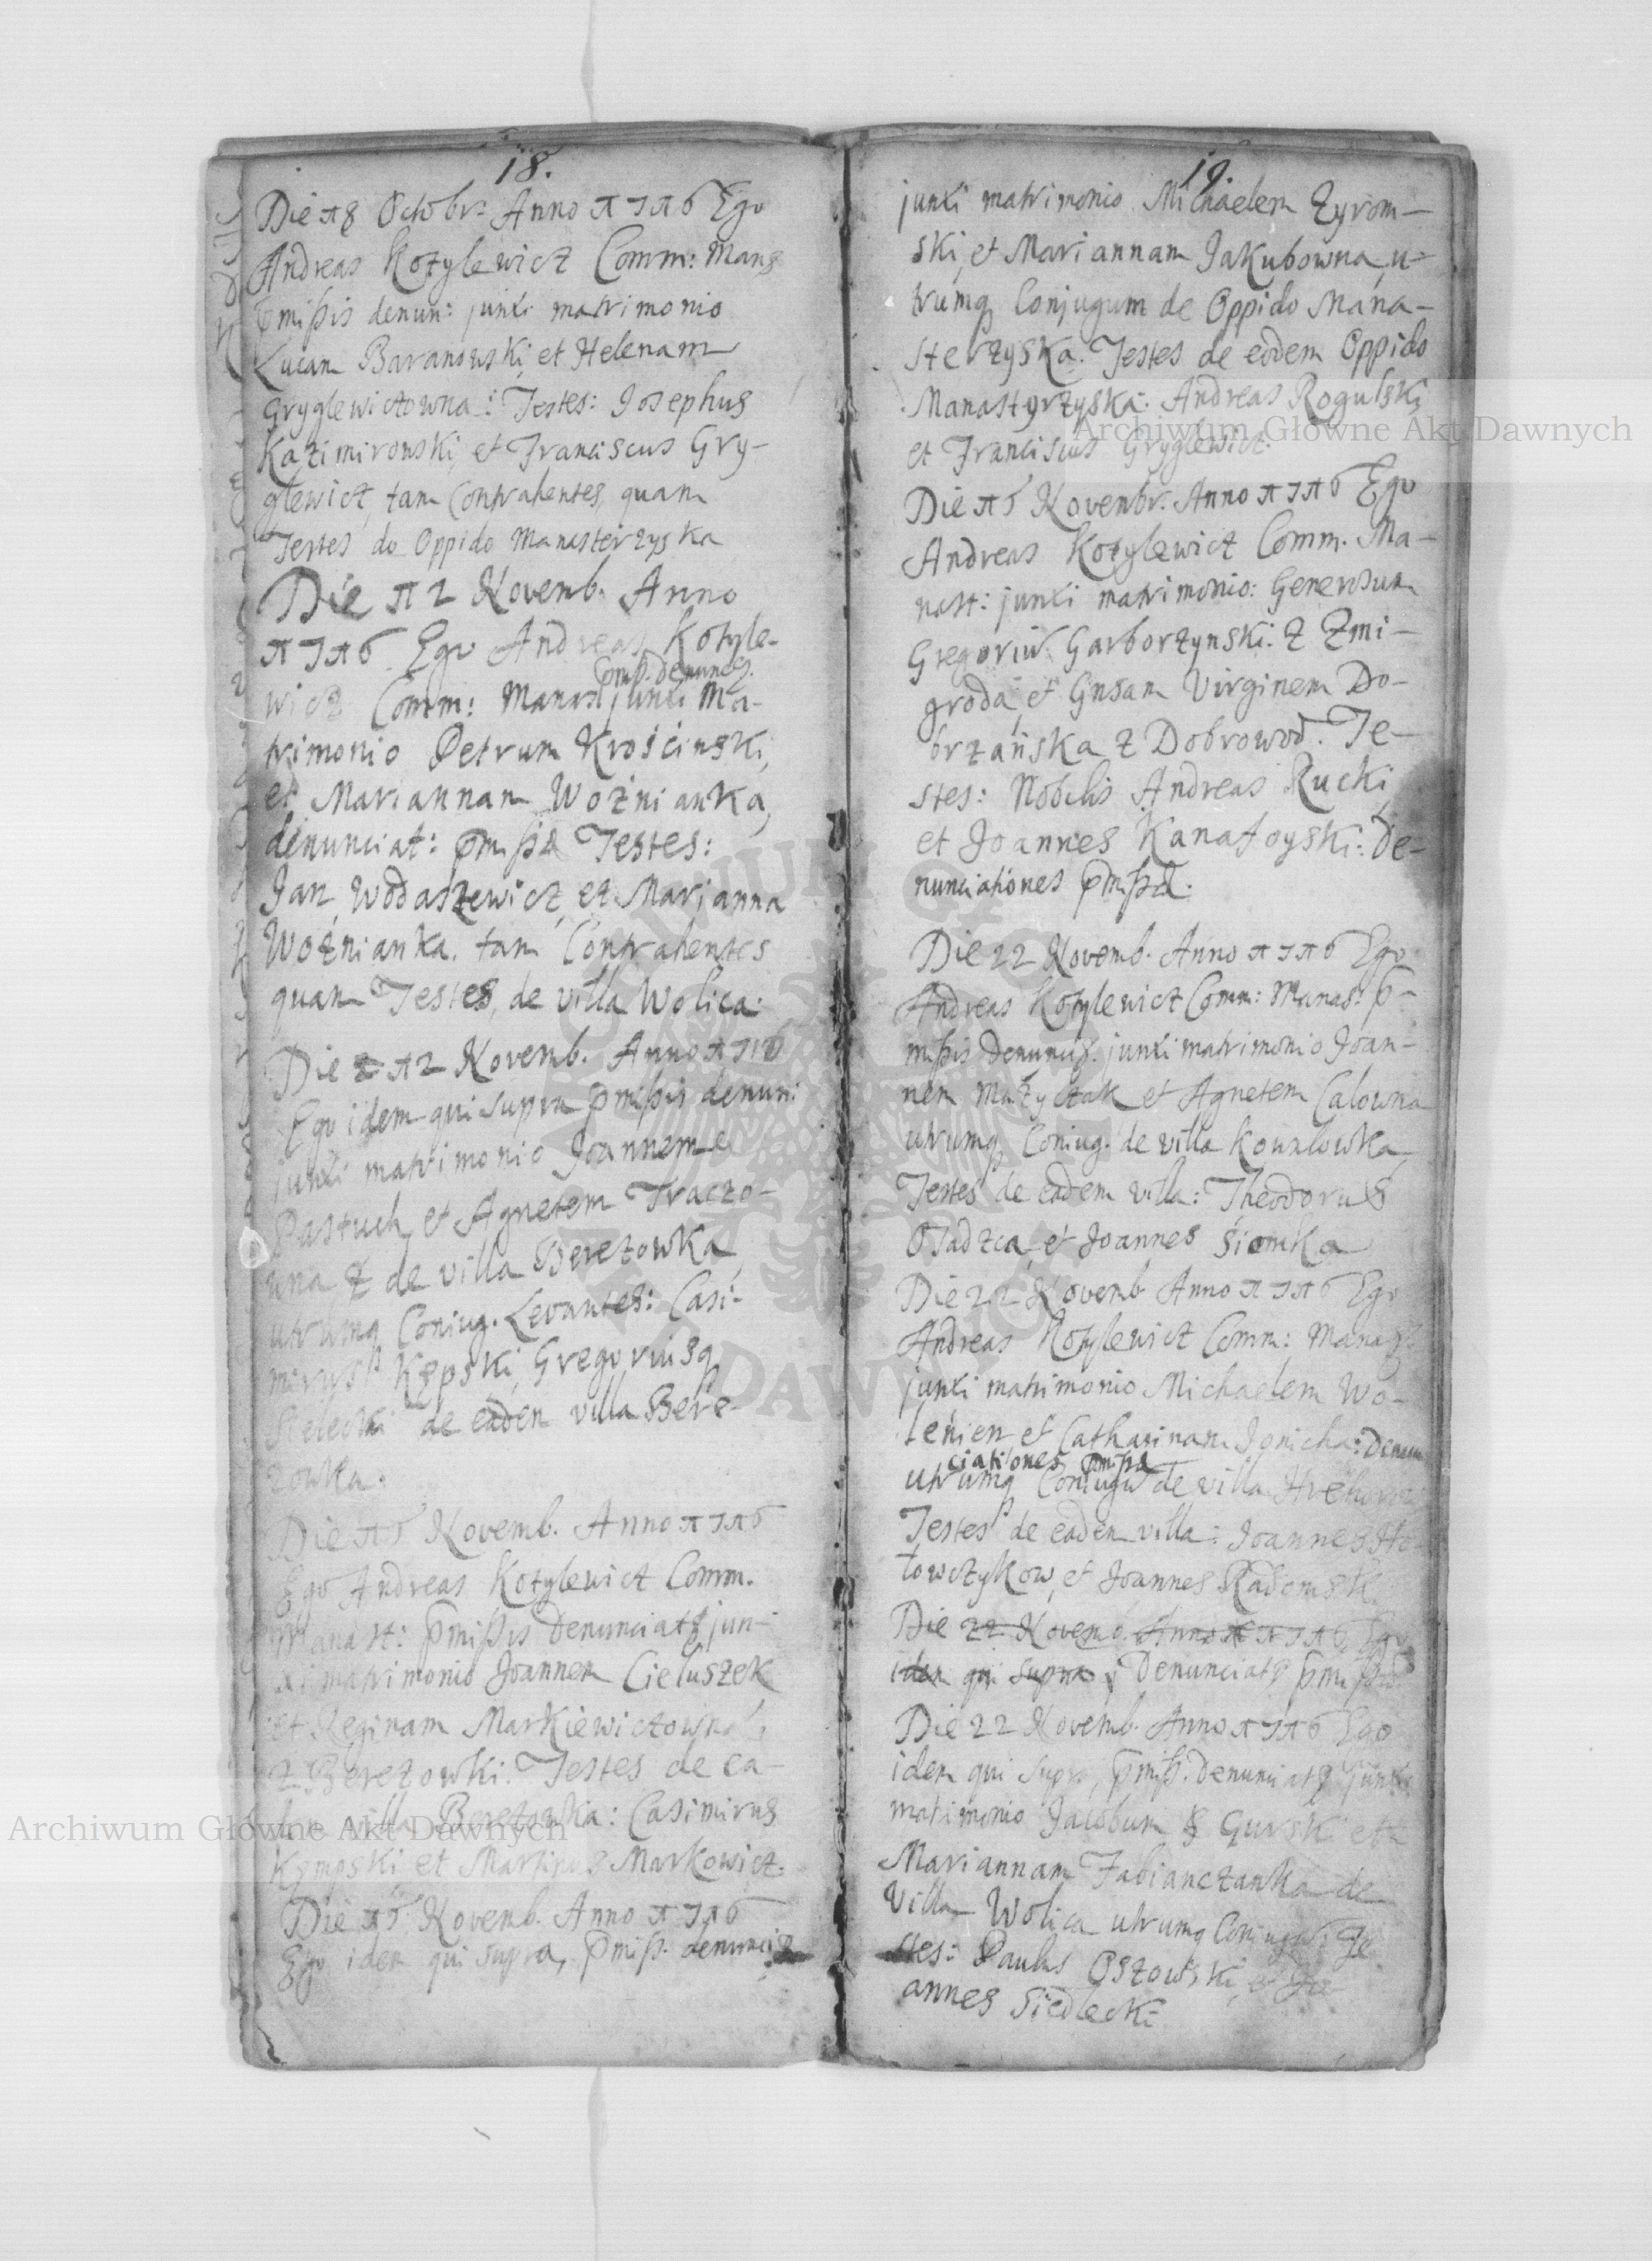 18.
Die 18 Octobr: Anno 1716 Ego
Andreas Kotylewicz Comm: Mans
pmißis denun: junxi matrimonio
Lucam Baranowski, et Helenam
Gryglewiczowna: Testes: Josephus
Kazimirowski, et Franciscus Gry-
glewicz, tam Contrahentes, quam
Testes de Oppido Manasterzyska
Die 12 Novemb. Anno
1716. Ego Andreas Kotyle-
pmiß. denunc.
wicz Comm: Manas junxi Ma-
trimonio Petrum Krościnski,
et Mariannam Woźnianka,
denunciat: pmißa Testes:
Jan Wodaszewicz, et Marjanna
Woźnianka. tam Contrahentes
quam Testes, de villa Wolica.
Die 12 Novemb. Anno 1716
Ego idem qui supra pmißis denun:
junxi matrimonio Joannem
Pastuch et Agnetem Traczo-
wna de villa Berezowka
utrumq Coniug. Levantes: Casi-
mirus Kępski, Gregoriusq
de eadem villa Bere-
zowka.
Die 15 Novemb. Anno 1716
Ego Andreas Kotylewicz Comm.
Manast: pmißis Denunciat, jun-
xi matrimonio Joannem Cieluszek
et Reginam Markiewiczowna,
z Berezowki. Testes de ea-
dem villa Berezowka: Casimirus
Kympski et Martinus Markowicz.
Die 15 Novemb. Anno 1716
Ego idem qui supra, pmiß. denunci
19.
junxi matrimonio Michaelem Zyrom-
ski, et Mariannam Jakubowna, u-
trumq Conjugum de Oppido Mana-
sterzyska. Testes de eodem Oppido
Manastyrzyska: Andreas Rogulski
et Franciscus Gryglewicz.
Die 15 Novembr. Anno 1716 Ego
Andreas Kotylewicz Comm. Ma-
nast: junxi matrimonio: Generosum
Gregoriu Garborzynski. Z Zmi-
groda, et Gnsam Virginem Do-
brzańska z Dobrowod. Te-
stes: Nobilis Andreas Rucki
et Joannes Kanafoyski: De-
nunciationes pmißa.
Die 22 Novemb. Anno 1716 Ego
Andreas Kotylewicz Comm: Manas: p-
mißis Denuncis. junxi matrimonio Joan-
nem Muzyczak et Agnetem Calowna
utrumq Coniug. de villa Kowalowka,
Testes de eadem villa: Theodorus
Osadzca, et Joannes Siomka
Die 22 Novemb Anno 1716 Ego
Andreas Kotylewicz Comm: Manas
junxi matrimonio Michaelem Wo-
leniem et Catharinam Jonicha: Denun
ciationes pmißa
utrumq Coniugu de villa
Testes de eadem villa: Joannes Ho-
łowczykow, et Joannes Radomsk
Die 22 Novemb. Anno 1716 Ego
idem qui supra, Denunciat pmißis
Die 22 Novemb. Anno 1716 Ego
idem qui supra, pmiß. Denunciat junxi
matrimonio Jacobum Gurski et
Mariannam Fabianczanka de
Villa Wolica utrumq Coniugu. Te
stes: Paulus Oszowski, et Jo-
annes Siedlecki
Archiwum Główne Akt Dawnych
Archiwum Główne Akt Dawnych